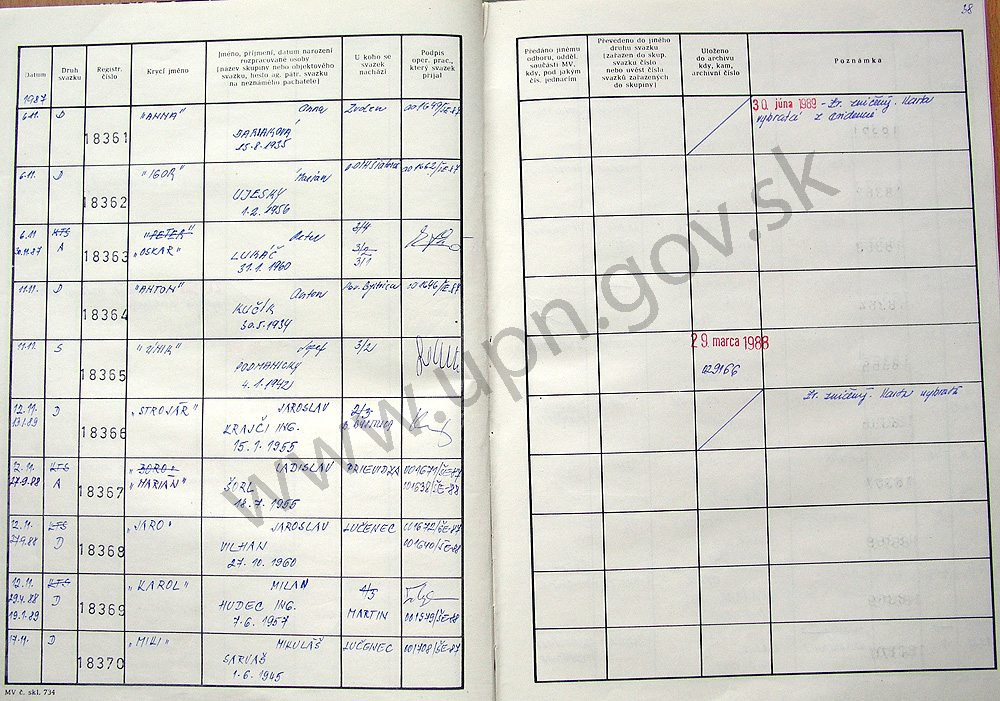 38
Datum
Druh svazku
Registr. číslo
Krycí jméno
Jméno, příjmení, datum narození
rozpracované osoby
(název skupiny nebo objektového
svazku, heslo ag. pátr. svazku
na neznámého pachatele)
U koho se
svazek
nachází
Podpis
oper. prac.,
který svazek
přijal
Předáno jinému
odboru, odděl.
součásti MV,
kdy, pod jakým
čís. jednacím
Převedeno do jiného
druhu svazku
(zařazen do skup.
svazku číslo
nebo uvést čísla
svazků zařazených
do skupiny)
Uloženo
do archivu
kdy, kam,
archivní číslo
Poznámka
1987
6.11. D 18361 "ANNA" Anna Zvolen 001649/ŠE-87
15.8.1935
30. júna 1989 - Zv. zničený. Karta
vybratá z evidence
6.11. D 18362 "IGOR" Marian 001662/ŠE-87
UJESKÝ
1.2.1956
6.11 KTS 18363 "PETER" Peter 3/4
30.11.87 A "OSKAR" LUKÁČ
31.1.1960 3/1
11.11. D 18364 "ANTON" Anton Pov. Bystrica 001646/ŠE-87
KUČÍK
30.5.1934
11.12. S 18365 Jozef 3/2
PODMANICKÝ
4.1.1942
29. marca 1988
029166
12.11. D 18366 "STROJÁR" JAROSLAV 2/3
13.1.89 KRAJČÍ ING.
15.1.1955
Zv. zničený. Karta vybratá
12.11. KTS 18367 "BORO" LADISLAV PRIEVIDZA 001671/ŠE-87
27.9.88 A "MARIÁN" ŠURL 001638/ŠE-88
18.7.1955
12.11. KTS 18368 "JARO" JAROSLAV LUČENEC 001672/ŠE-87
27.9.88 D VILHAN 001640/ŠE-88
27.10.1960
12.11. KTS 18369 "KAROL" MILAN
29.4.88 D HUDEC ING.
19.1.89 7.6.1957 MARTIN 001979/ŠE-88
17.11. D 18370 "MIKI" MIKULÁŠ LUČENEC 001708/ŠE-87
SARVAŠ
1.6.1945
MV č. skl. 734
www.upn.gov.sk